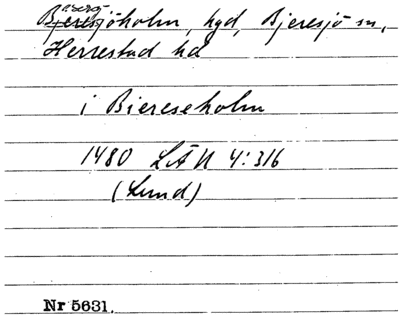 Bergsjöholm, hgd, Bjeresjö sn,
Herrestad hd
i Biereseholm
1480 LÄU 4:316
(Lund)
Nr 5631.